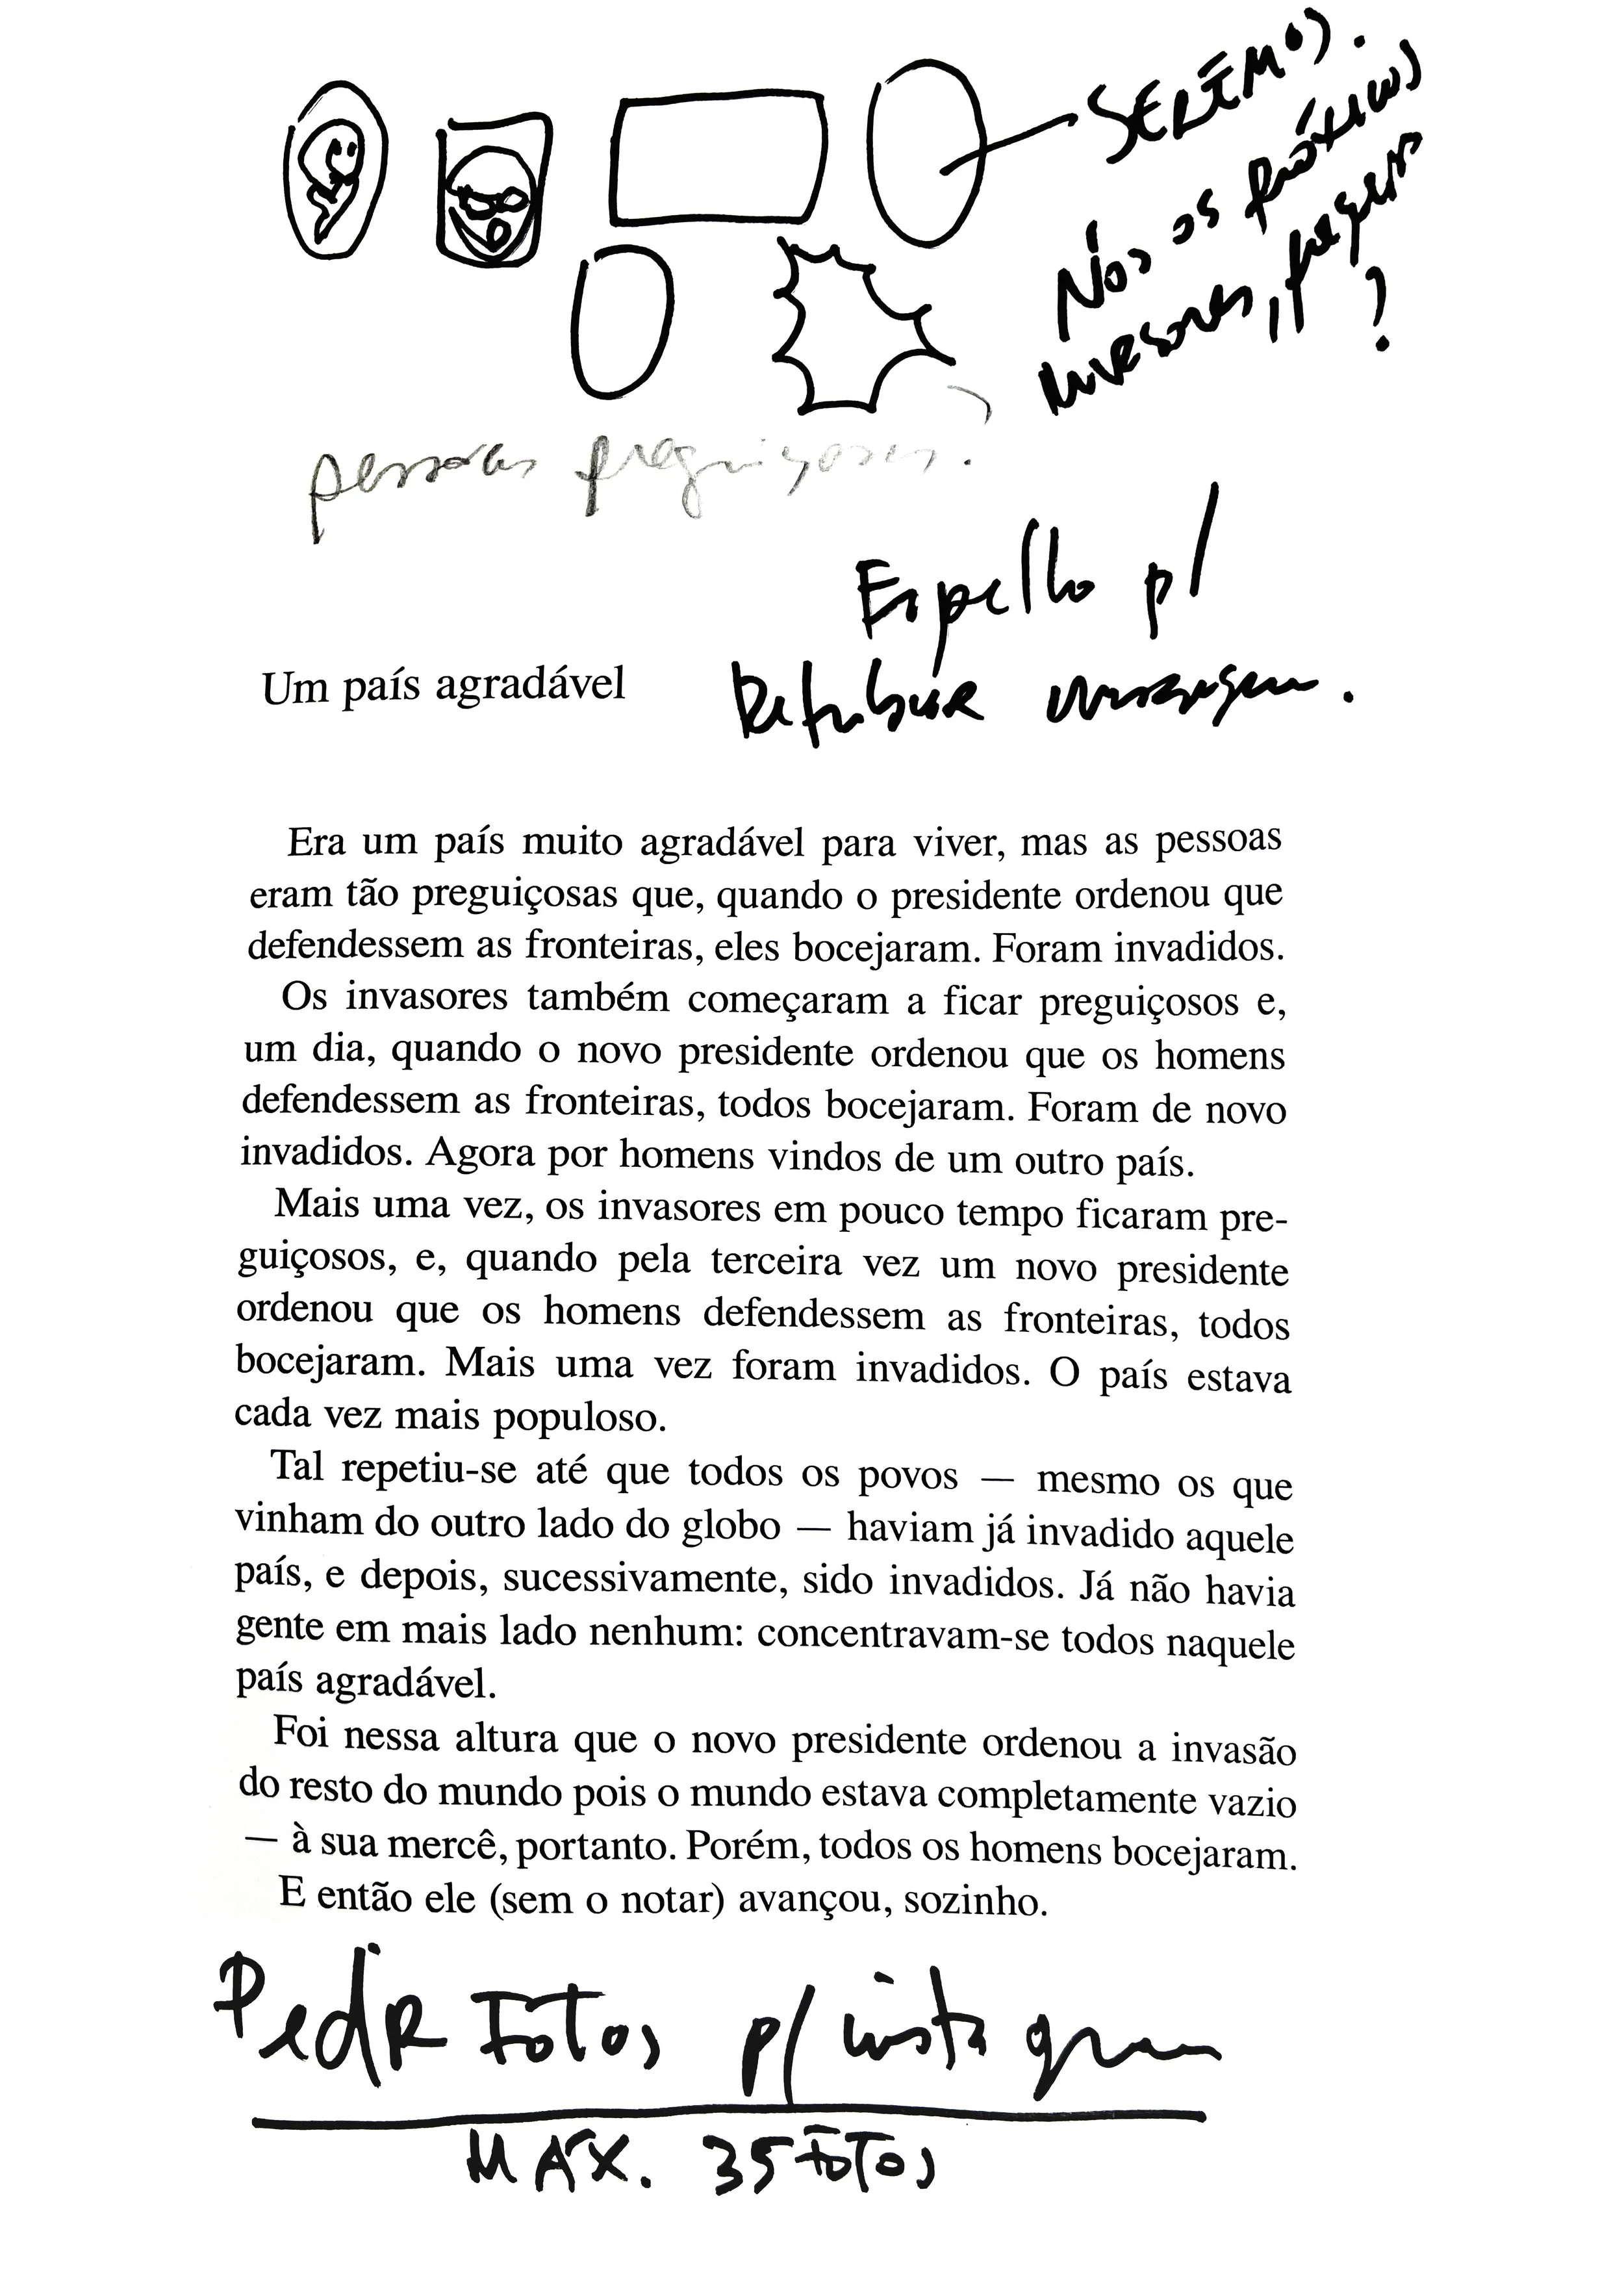 SEREMOS.
Nós os próximos
invasores,
?
pessoas preguiçosas.
Espelho p/
Retribuir mensagem.
Um país agradável
Era um país muito agradável para viver, mas as pessoas
eram tão preguiçosas que, quando o presidente ordenou que
defendessem as fronteiras, eles bocejaram. Foram invadidos.
Os invasores também começaram a ficar preguiçosos e,
um dia, quando o novo presidente ordenou que os homens
defendessem as fronteiras, todos bocejaram. Foram de novo
invadidos. Agora por homens vindos de um outro país.
Mais uma vez, os invasores em pouco tempo ficaram pre-
guiçosos, e, quando pela terceira vez um novo presidente
ordenou que os homens defendessem as fronteiras, todos
bocejaram. Mais uma vez foram invadidos. O país estava
cada vez mais populoso.
Tal repetiu-se até que todos os povos — mesmo os que
vinham do outro lado do globo — haviam já invadido aquele
país, e depois, sucessivamente, sido invadidos. Já não havia
gente em mais lado nenhum: concentravam-se todos naquele
país agradável.
Foi nessa altura que o novo presidente ordenou a invasão
do resto do mundo pois o mundo estava completamente vazio
— à sua mercê, portanto. Porém, todos os homens bocejaram.
E então ele (sem o notar) avançou, sozinho.
Pedir FOTOS p/ instagram
MÁX. 35 FOTOS